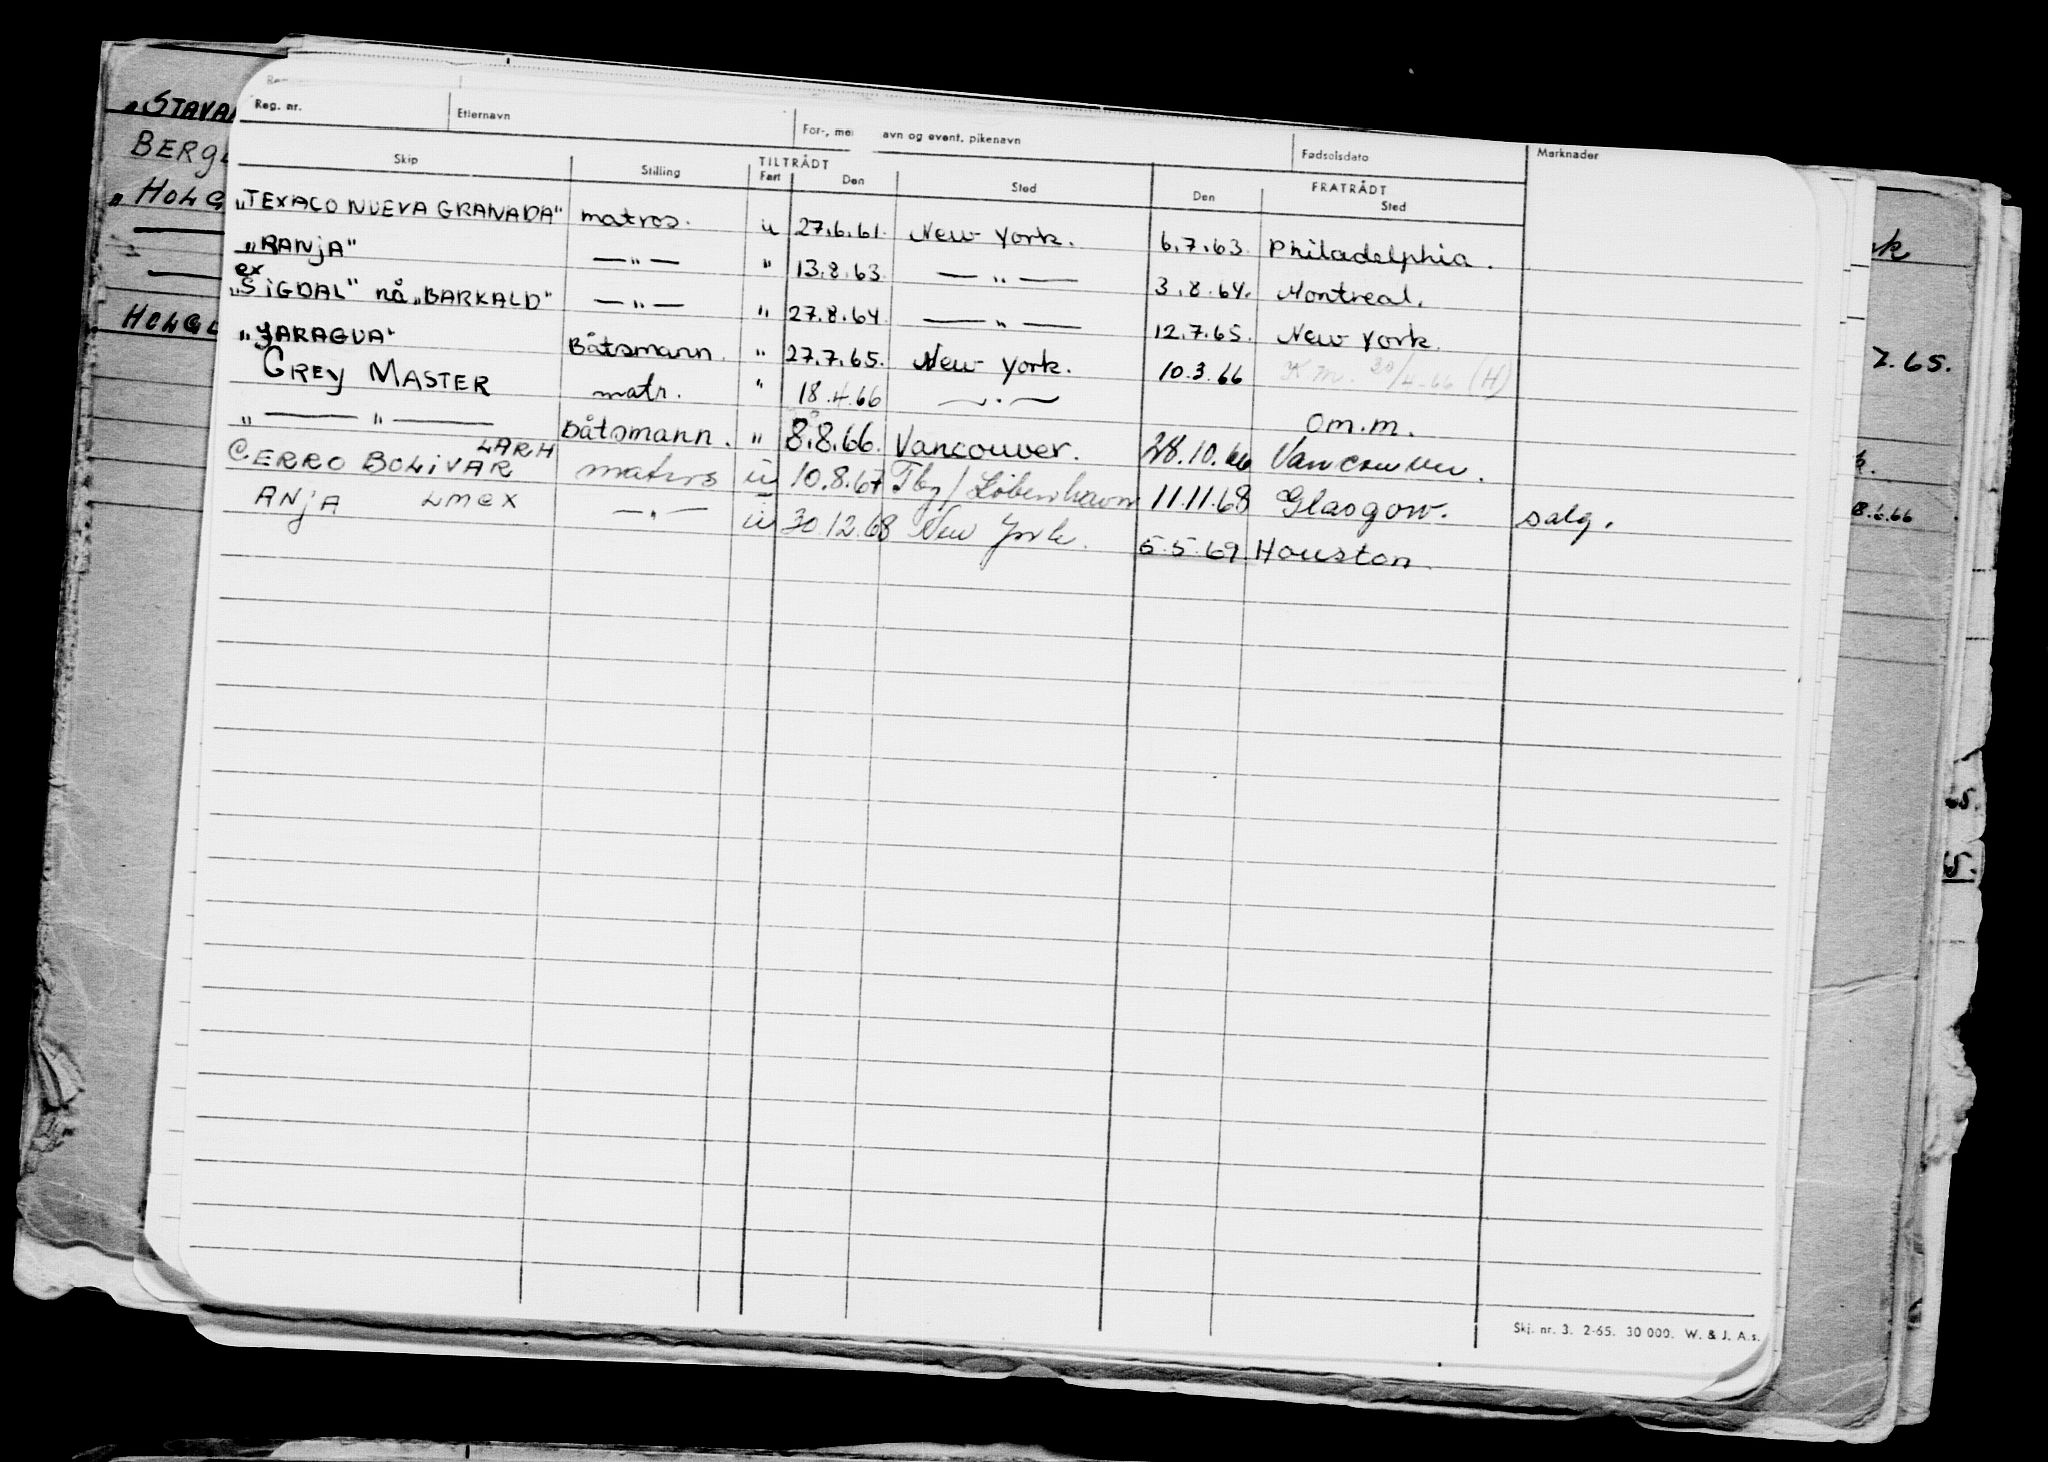 Reg. nr. Etternavn avn og event. pikenavn Fødselsdato Merknader
Skip Stilling TILTRÅDT Fart Den Sted FRATRÅDT Den Sted
"TEXACO NUEVA GRANADA" matros. u 27.6.61. New York. 6.7.63. Philadelphia.
"RANJA" — " — " 13.8.63. — " — 3.8.64. Montreal.
ex
"SIGDAL" nå "BARKALD" — " — " 27.8.64 — " — 12.7.65. New York.
"JARAGUA" Båtsmann. " 27.7.65. New York. 10.3.66 K.m. 20/4.66 (H)
GREY MASTER matr. " 18.4.66 — " — om.m.
" — " — Båtsmann. " 8.8.66. Vancouver. 28.10.66 Vancouver.
CERRO BOLIVAR LARH matros ü 10.8.67 Tbg/ København 11.11.68 Glasgow. salg.
ANJA LMEX — " — ü 30.12.68 New York. 5.5.69. Houston.
Skj. nr. 3. 2-65. 30 000. W. & J. A.s.
"STAVA
BERG
"HOLG
HOLG
7.65.
8.6.66